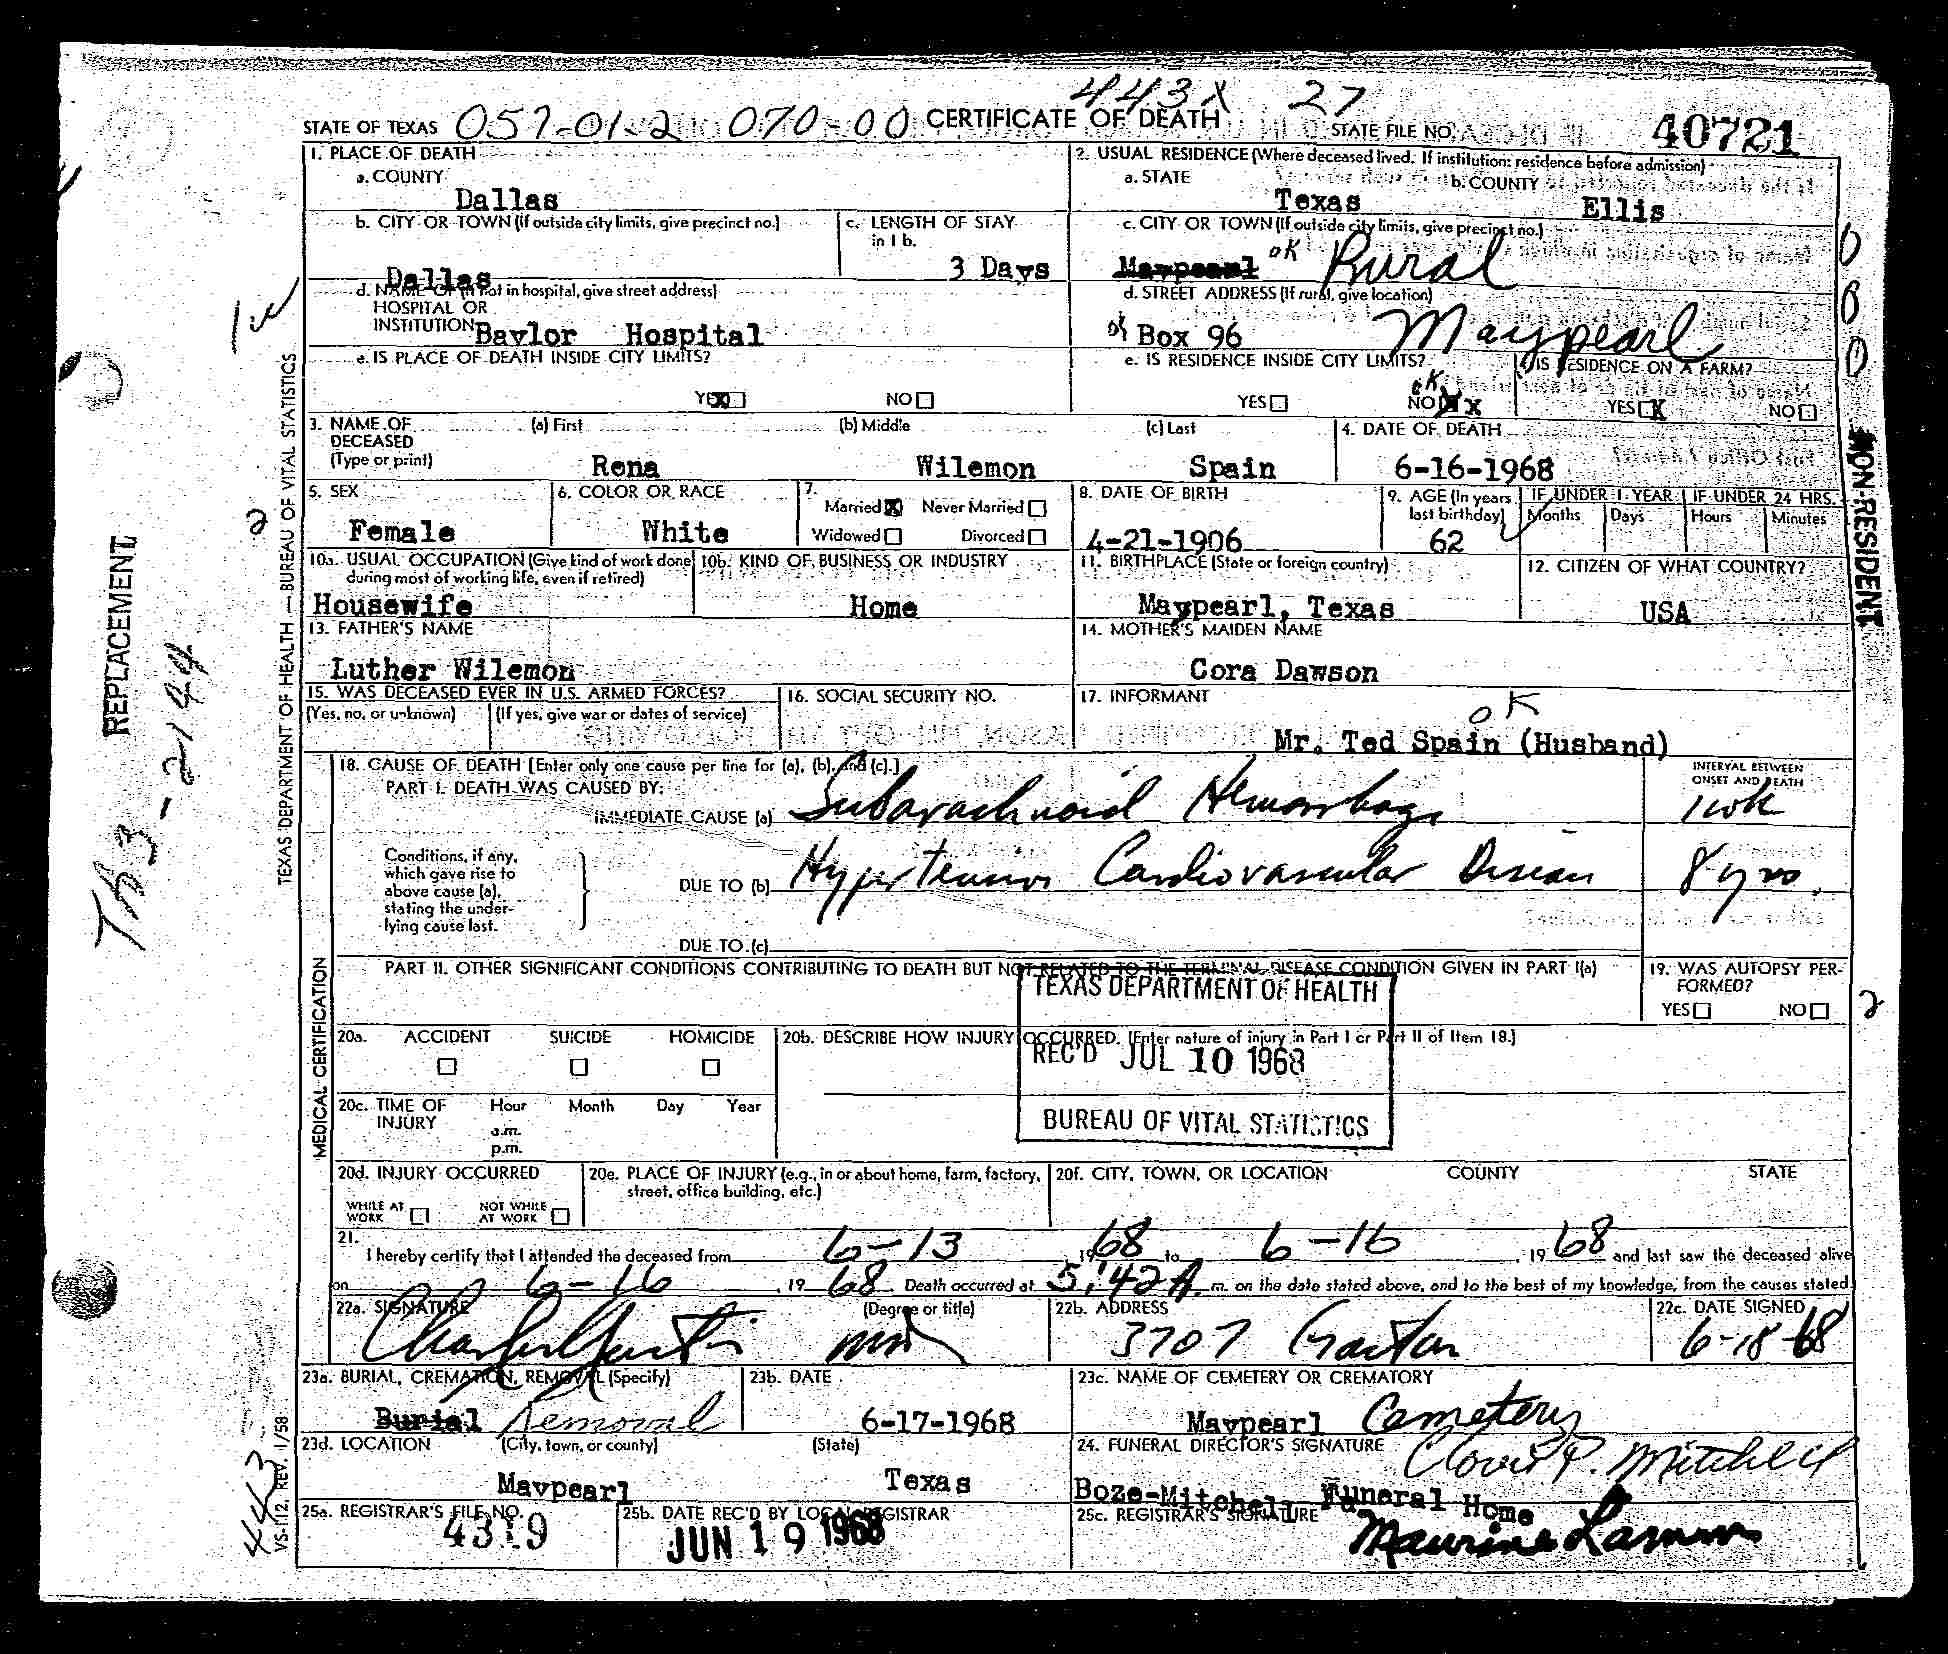 443X 27
STATE OF TEXAS 057-01-2 070-00 CERTIFICATE OF DEATH STATE FILE NO. 40721
1. PLACE OF DEATH
a. COUNTY
Dallas
2. USUAL RESIDENCE (Where deceased lived. If institution: residence before admission)
a. STATE
Texas
b. COUNTY
Ellis
b. CITY OR TOWN (If outside city limits, give precinct no.)
Dallas
c. LENGTH OF STAY in 1 b.
3 Days
c. CITY OR TOWN (If outside city limits, give precinct no.)
Maypearl OK Rural
d. NAME OF (If not in hospital, give street address)
HOSPITAL OR
INSTITUTION Baylor Hospital
d. STREET ADDRESS (If rural, give location)
ok Box 96 Maypearl
e. IS PLACE OF DEATH INSIDE CITY LIMITS?
YES X NO
e. IS RESIDENCE INSIDE CITY LIMITS?
OK
YES NO X
f. IS RESIDENCE ON A FARM?
YES X NO
3. NAME OF DECEASED (Type or print)
(a) First (b) Middle (c) Last
Rena Wilemon Spain
4. DATE OF DEATH
6-16-1968
5. SEX
Female
6. COLOR OR RACE
White
7.
Married X Never Married
Widowed Divorced
8. DATE OF BIRTH
4-21-1906
9. AGE (In years last birthday)
62
IF UNDER 1 YEAR
Months Days
IF UNDER 24 HRS.
Hours Minutes
10a. USUAL OCCUPATION (Give kind of work done during most of working life, even if retired)
Housewife
10b. KIND OF BUSINESS OR INDUSTRY
Home
11. BIRTHPLACE (State or foreign country)
Maypearl, Texas
12. CITIZEN OF WHAT COUNTRY?
USA
13. FATHER'S NAME
Luther Wilemon
14. MOTHER'S MAIDEN NAME
Cora Dawson
15. WAS DECEASED EVER IN U.S. ARMED FORCES?
(Yes, no, or unknown) (If yes, give war or dates of service)
16. SOCIAL SECURITY NO.
17. INFORMANT
OK
Mr. Ted Spain (Husband)
18. CAUSE OF DEATH [Enter only one cause per line for (a), (b), and (c).]
INTERVAL BETWEEN ONSET AND DEATH
PART I. DEATH WAS CAUSED BY:
IMMEDIATE CAUSE (a) Subarachnoid Hemorrhage 1 wk
Conditions, if any, which gave rise to above cause (a), stating the underlying cause last.
DUE TO (b) Hypertensive Cardiovascular Disease 8 yrs.
DUE TO (c)
PART II. OTHER SIGNIFICANT CONDITIONS CONTRIBUTING TO DEATH BUT NOT RELATED TO THE TERMINAL DISEASE CONDITION GIVEN IN PART I(a)
19. WAS AUTOPSY PERFORMED?
YES NO
2
TEXAS DEPARTMENT OF HEALTH
REC'D JUL 10 1968
BUREAU OF VITAL STATISTICS
20a. ACCIDENT SUICIDE HOMICIDE
20b. DESCRIBE HOW INJURY OCCURRED. (Enter nature of injury in Part I or Part II of Item 18.)
20c. TIME OF INJURY
Hour Month Day Year
a.m.
p.m.
20d. INJURY OCCURRED
WHILE AT WORK NOT WHILE AT WORK
20e. PLACE OF INJURY (e.g., in or about home, farm, factory, street, office building, etc.)
20f. CITY, TOWN, OR LOCATION COUNTY STATE
21.
I hereby certify that I attended the deceased from 6-13 1968 to 6-16, 1968 and last saw the deceased alive
on 6-16, 1968. Death occurred at 5:42 A. m. on the date stated above, and to the best of my knowledge, from the causes stated.
22a. SIGNATURE (Degree or title)
MD
22b. ADDRESS
3707 Gaston
22c. DATE SIGNED
6-18-68
23a. BURIAL, CREMATION, REMOVAL (Specify)
Burial Removal
23b. DATE
6-17-1968
23c. NAME OF CEMETERY OR CREMATORY
Maypearl Cemetery
23d. LOCATION (City, town, or county) (State)
Maypearl Texas
24. FUNERAL DIRECTOR'S SIGNATURE
Clovis P. Mitchell
Boze-Mitchell Funeral Home
25a. REGISTRAR'S FILE NO.
4319
25b. DATE REC'D BY LOCAL REGISTRAR
JUN 19 1968
25c. REGISTRAR'S SIGNATURE
Maurine Lamm
TEXAS DEPARTMENT OF HEALTH — BUREAU OF VITAL STATISTICS
MEDICAL CERTIFICATION
VS-112, REV. 1/58
443
REPLACEMENT
2
NON-RESIDENT